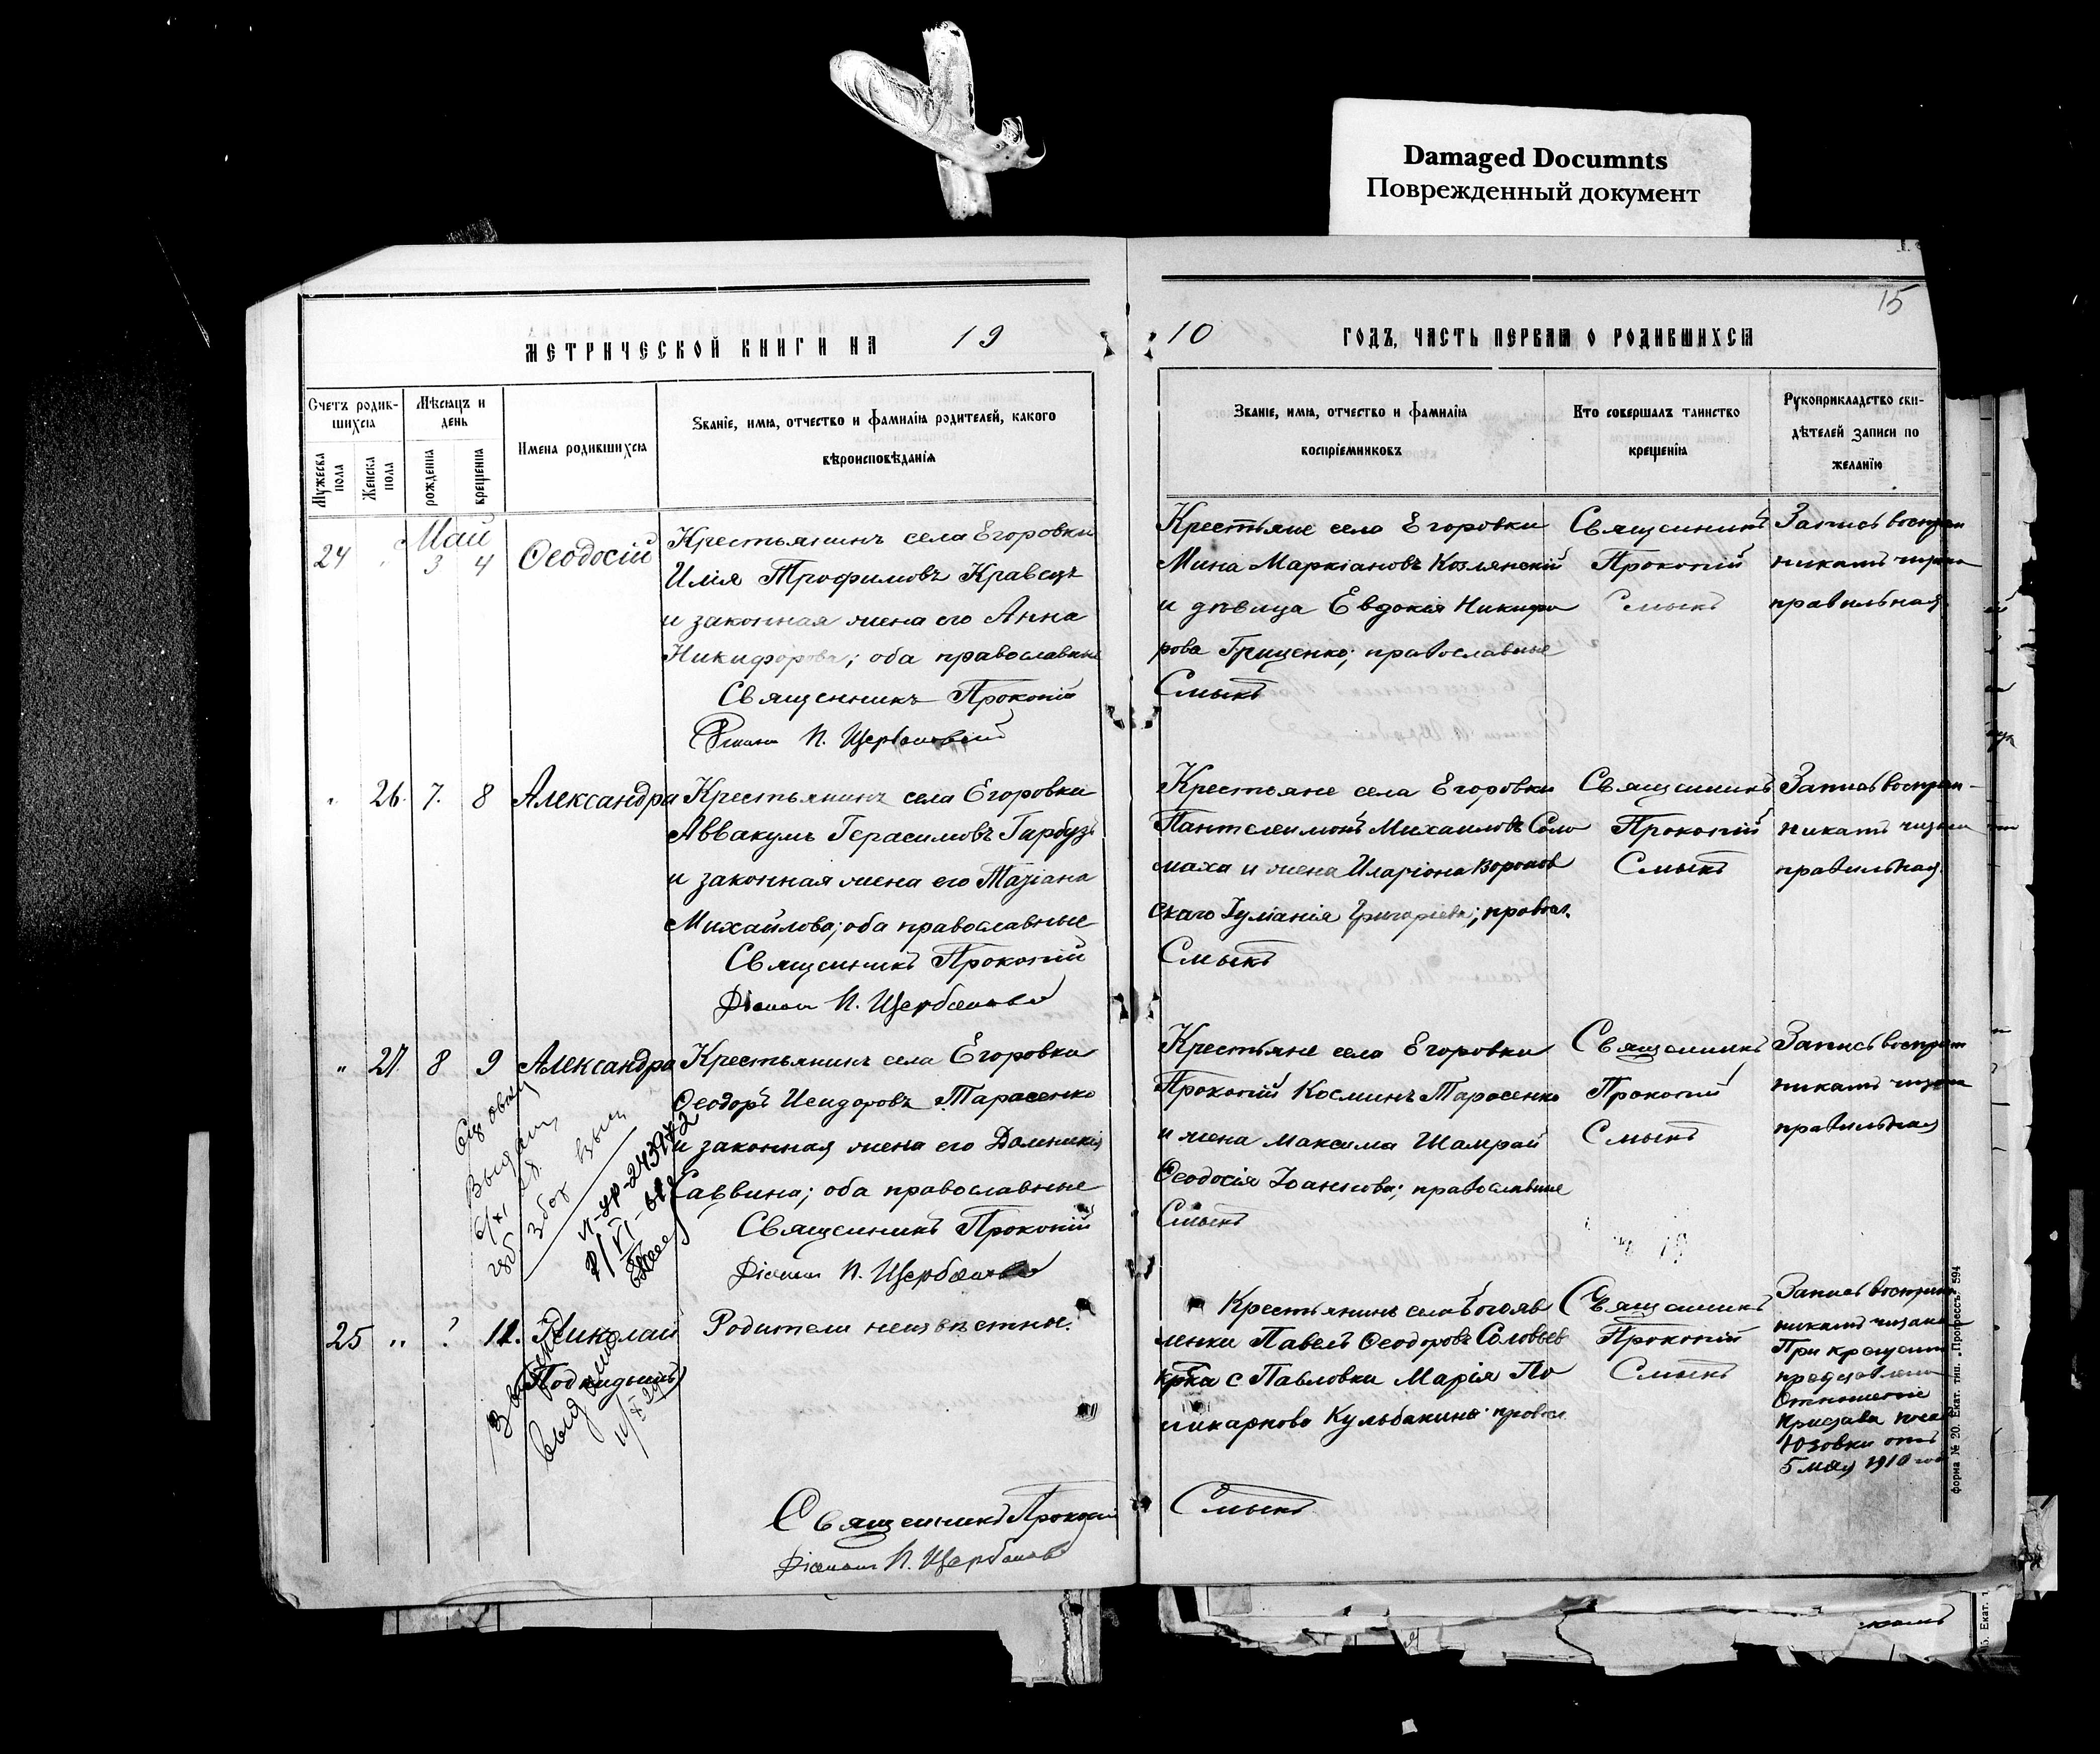 Damaged Documnts
Поврежденный документ
15
МЕТРИЧЕСКОЙ КНИГИ НА 19
10 ГОДЪ, ЧАСТЬ ПЕРВАЯ О РОДИВШИХСЯ
Счетъ родив-
шихся
Мужеска пола
Женска пола
Мѣсяцъ и
день
рожденія
крещенія
Имена родившихся
Званіе, имя, отчество и фамилія родителей, какого
вѣроисповѣданія
Званіе, имя, отчество и фамилія
воспріемниковъ
Кто совершалъ таинство
крещенія
Рукоприкладство сви-
дѣтелей записи по
желанію
Май
24 " 3 4
Ѳеодосій
Крестьянинъ села Егоровки
Илія Трофимовъ Кравецъ
и законная жена его Анна
Никифорова; оба православные
Священникъ Прокопій
Діаконъ П. Щербановскій
Крестьяне села Егоровки
Мина Маркіановъ Козлянскій
и дѣвица Евдокія Никифо
рова Гриценко; православные
Смыкъ
Священникъ
Прокопій
Смыкъ
Запись воспріем
никамъ читана
правильная
" 26. 7. 8
Александра
Крестьянинъ села Егоровки
Аввакумъ Герасимовъ Гарбузъ
и законная жена его Татіана
Михайлова; оба православные
Священникъ Прокопій
Діаконъ П.
Крестьяне села Егоровки
Пантелеимонъ Михаиловъ Соло
маха и жена Иларіона Воронов
скаго Іуліанія Григоріева; правосл.
Смыкъ
Священникъ
Прокопій
Смыкъ
Запись воспріем-
никамъ читана
правильная
" 27 8 9
Александра
Крестьянинъ села Егоровки
Ѳеодоръ Исидоровъ Тарасенко
и законная жена его Домникія
Саввина; оба православные
Священникъ Прокопій
Діаконъ П.
Крестьяне села Егоровки
Прокопій Косминъ Тарасенко
и жена Максима Шамрай
Ѳеодосія Іоаннова; православные
Смыкъ
Священникъ
Прокопій
Смыкъ
Запись воспріем
никамъ читана
правильная
25 " ? 11.
Николай
Подкидышъ
Родители неизвѣстны.
Крестьянинъ села Богояв
ленки Павелъ Ѳеодоровъ Соловьев
с Павловки Марія По
ликарпова Кульбакина; правосл
Смыкъ
Священникъ
Прокопій
Смыкъ
Запись воспріем
никамъ читана
При крещеніи
представлено
Отношеніе
Пристава посел
Юзовки отъ
5 мая 1910 год
Священникъ Прокопій
Діаконъ П.
форма № 20. Екат. тип. „Прогрессъ“. 594